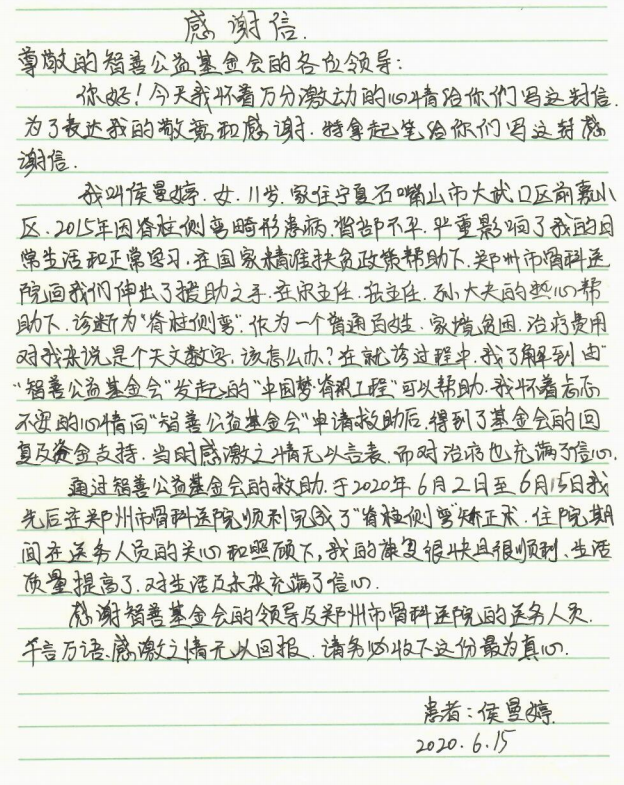 感谢信.
尊敬的智善公益基金会的各位领导：
你好！今天我怀着万分激动的心情给你们写这封信.
为了表达我的敬意和感谢.特拿起笔给你们写这封感
谢信.
我叫侯曼婷.女.11岁.家住宁夏石嘴山市大武口区前嘉小
区.2015年因脊柱侧弯畸形患病.背部不平.严重影响了我的日
常生活和正常学习.在国家精准扶贫政策帮助下.郑州市骨科医
院向我们伸出了援助之手.在宋主任.张主任.孙大夫的热心帮
助下.诊断为"脊柱侧弯".作为一个普通百姓.家境贫困.治疗费用
对我来说是个天文数字.该怎么办？在就诊过程中.我了解到由
"智善公益基金会"发起的"中国梦·脊梁工程"可以帮助.我怀着忐忑
不安的心情向"智善公益基金会"申请救助后.得到了基金会的回
复及资金支持.当时感激之情无以言表.而对治疗也充满了信心.
通过智善公益基金会的救助.于2020年6月2日至6月15日我
先后在郑州市骨科医院顺利完成了"脊柱侧弯"矫正术.住院期
间在医务人员的关心和照顾下.我的康复很快且很顺利.生活
质量提高了.对生活及未来充满了信心.
感谢智善基金会的领导及郑州市骨科医院的医务人员.
千言万语.感激之情无以回报.请务必收下这份最为真心.
患者：侯曼婷
2020.6.15